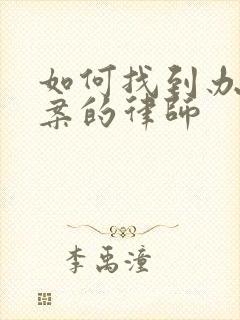 如何找到办
案的律师
李禹潼